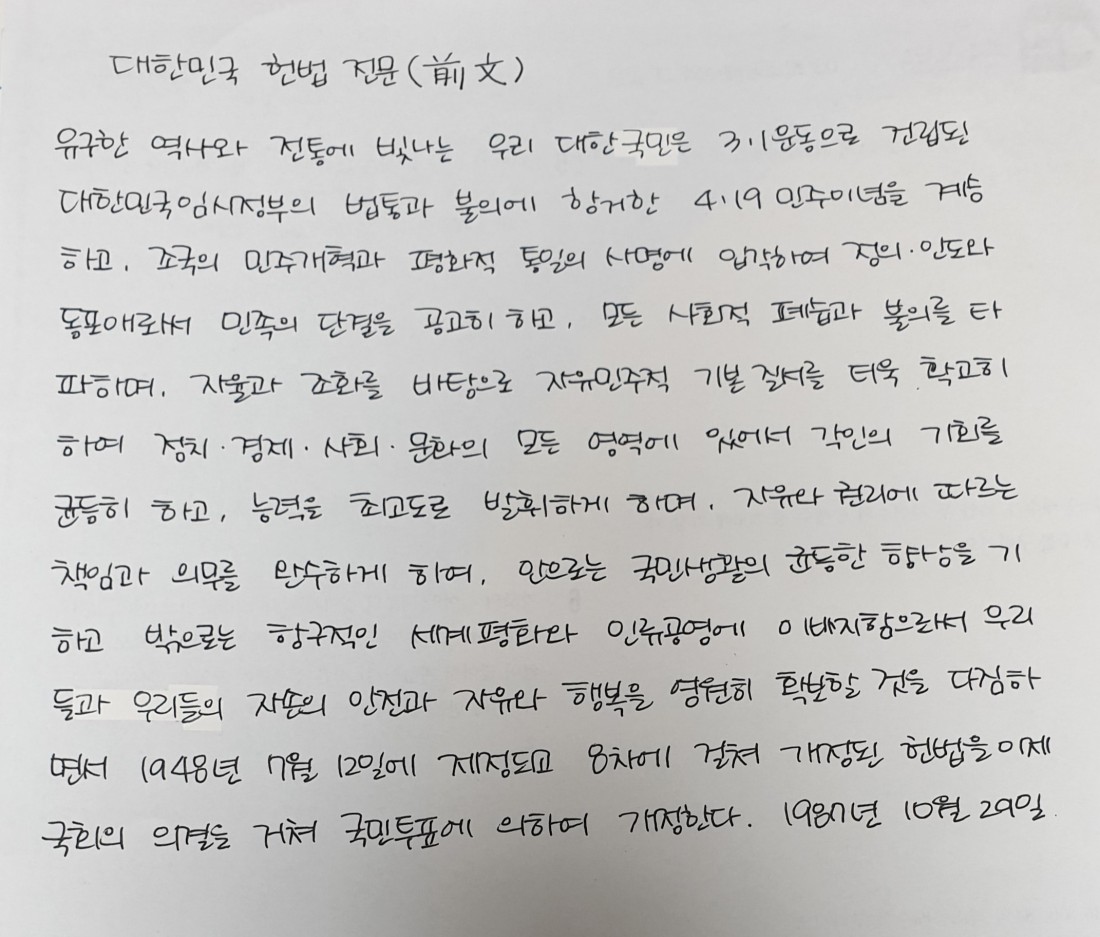 대한민국 헌법 전문(前文)
유구한 역사와 전통에 빛나는 우리 대한국민은 3·1운동으로 건립된
대한민국임시정부의 법통과 불의에 항거한 4·19 민주이념을 계승
하고, 조국의 민주개혁과 평화적 통일의 사명에 입각하여 정의·인도와
동포애로써 민족의 단결을 공고히 하고, 모든 사회적 폐습과 불의를 타
파하며, 자율과 조화를 바탕으로 자유민주적 기본질서를 더욱 확고히
하여 정치·경제·사회·문화의 모든 영역에 있어서 각인의 기회를
균등히 하고, 능력을 최고도로 발휘하게 하며, 자유와 권리에 따르는
책임과 의무를 완수하게 하여, 안으로는 국민생활의 균등한 향상을 기
하고 밖으로는 항구적인 세계평화와 인류공영에 이바지함으로써 우리
들과 우리들의 자손의 안전과 자유와 행복을 영원히 확보할 것을 다짐하
면서 1948년 7월 12일에 제정되고 8차에 걸쳐 개정된 헌법을 이제
국회의 의결을 거쳐 국민투표에 의하여 개정한다. 1987년 10월 29일.